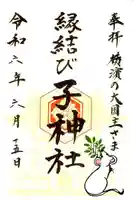 奉拝 横濱の大国主さま
縁結び
子神社
令和六年六月十五日